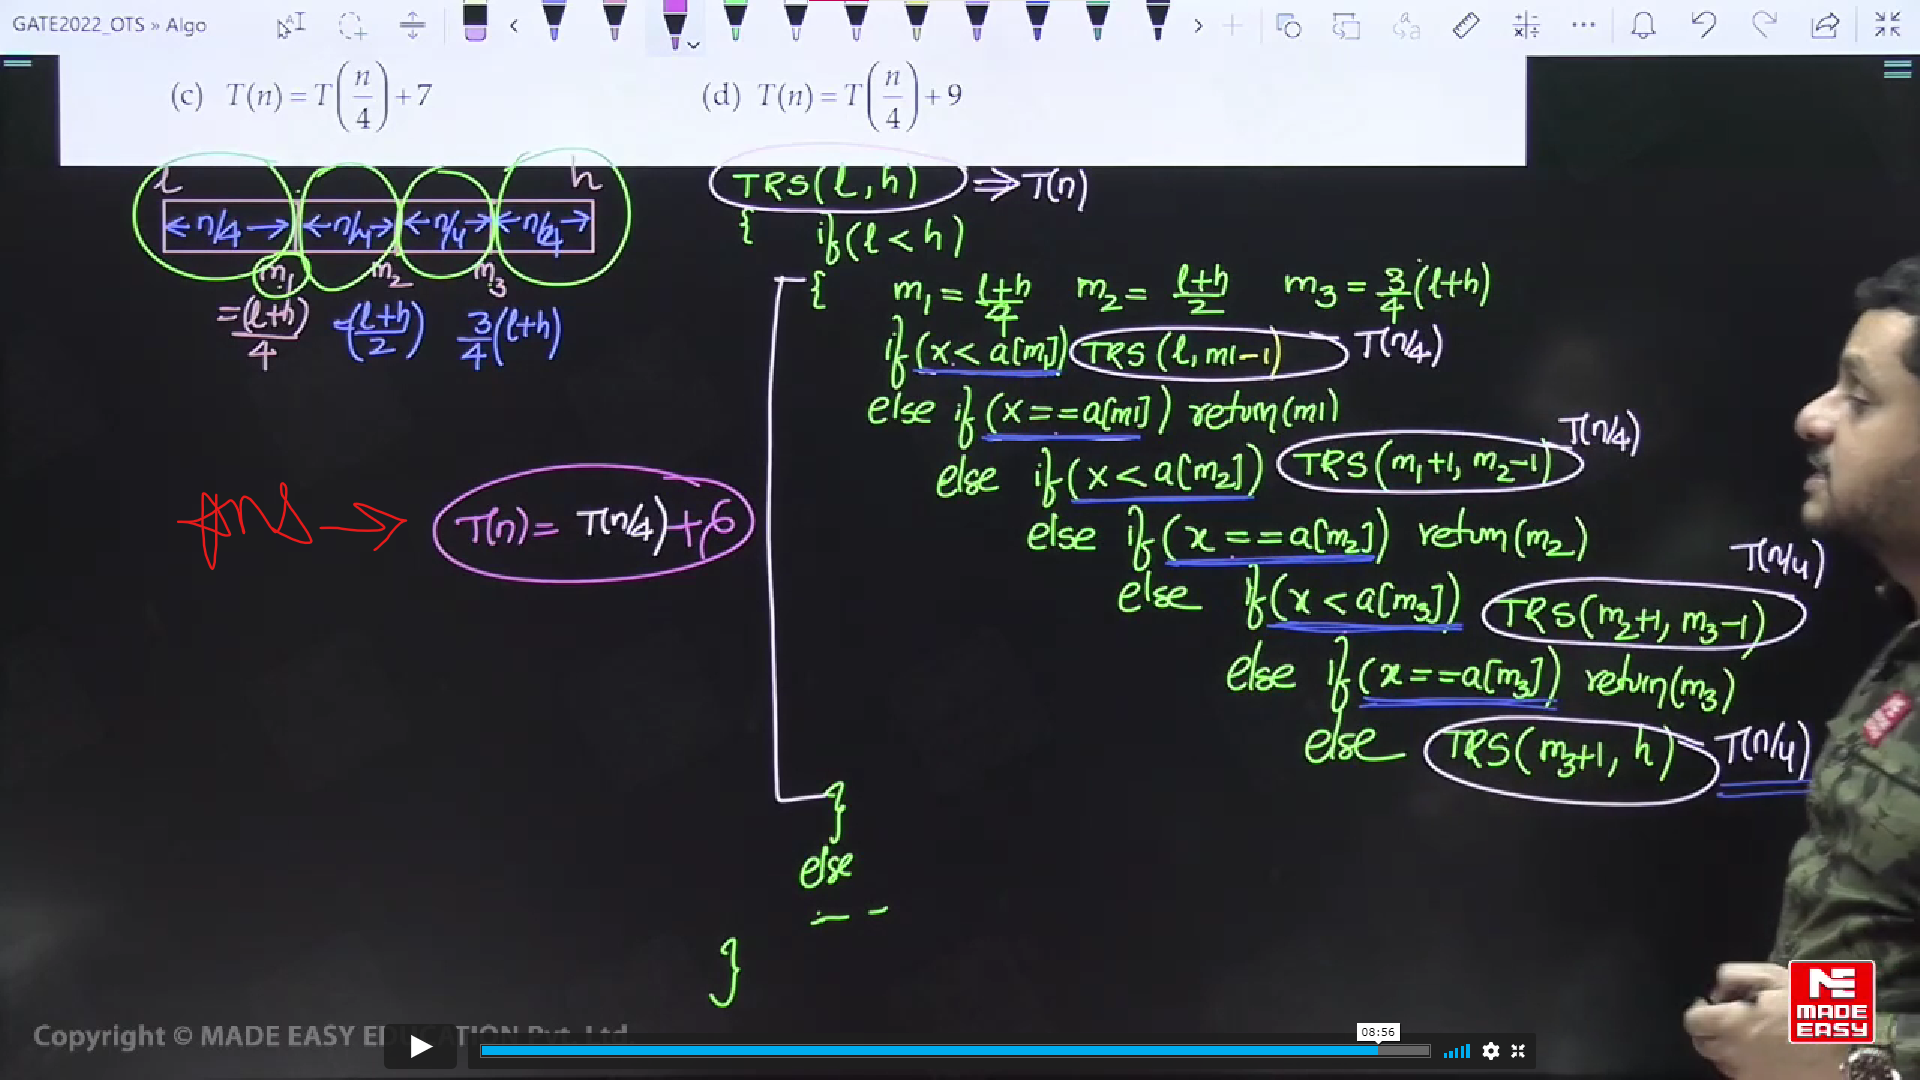 GATE2022_OTS » Algo
(c) T(n) = T(n/4) + 7
(d) T(n) = T(n/4) + 9
l h
n/4 n/4 n/4 n/4
m1 m2 m3
=(l+h)/4 =(l+h)/2 3/4(l+h)
TRS(l,h) ⇒ T(n)
{ if(l < h)
{ m1 = l+h/4 m2 = l+h/2 m3 = 3/4(l+h)
if(x < a[m1]) TRS(l, m1-1) T(n/4)
else if(x == a[m1]) return(m1)
else if(x < a[m2]) TRS(m1+1, m2-1) T(n/4)
else if(x == a[m2]) return(m2)
else if(x < a[m3]) TRS(m2+1, m3-1) T(n/4)
else if(x == a[m3]) return(m3)
else TRS(m3+1, h) T(n/4)
}
else
- -
}
Ans → T(n) = T(n/4) + 6
Copyright © MADE EASY EDUCATION Pvt. Ltd.
08:56
MADE
EASY